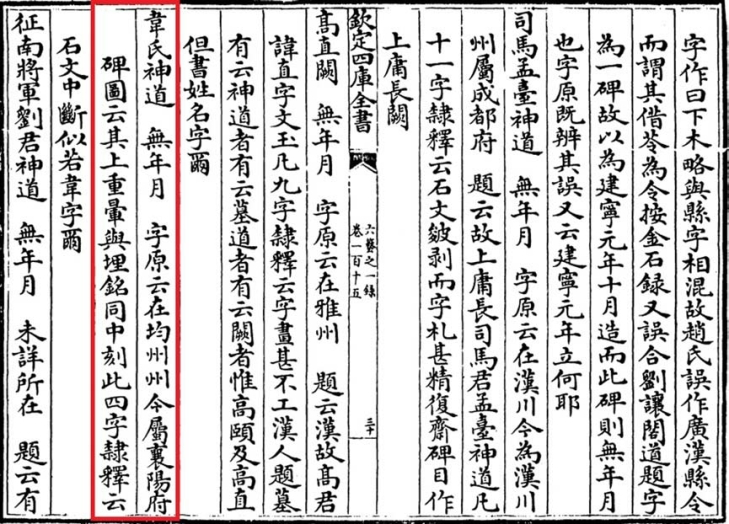 字作曰下木略與縣字相混故趙氏誤作廣漢縣令
而謂其借苓為令按金石録又誤合劉讓閣道題字
為一碑故以為建寧元年十月造而此碑則無年月
也字原既辨其誤又云建寧元年立何耶
司馬孟臺神道 無年月 字原云在漢川今為漢川
州屬成都府 題云故上庸長司馬君孟臺神道凡
十一字隸釋云石文皴剥而字札甚精復齋碑目作
上庸長闕
欽定四庫全書
六藝之一録
卷一百十五
三十
髙直闕 無年月 字原云在雅州 題云漢故髙君
諱直字文玉凡九字隸釋云字畫甚不工漢人題墓
有云神道者有云墓道者有云闕者惟高頤及高直
但書姓名字爾
韋氏神道 無年月 字原云在均州州今屬襄陽府
碑圖云其上重暈與埋銘同中刻此四字隸釋云
石文中斷似若韋字爾
征南將軍劉君神道 無年月 未詳所在 題云有